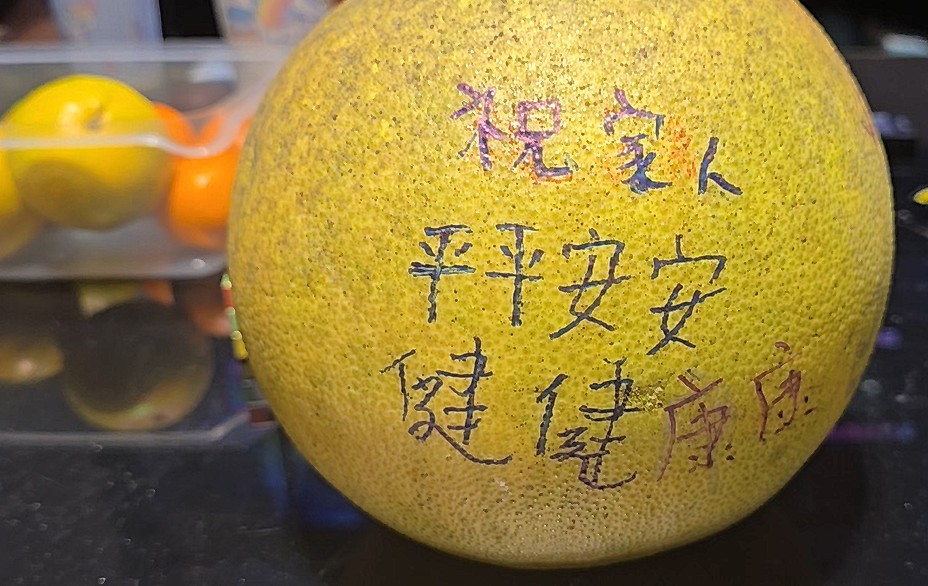 祝家人
平平安安
健健康康